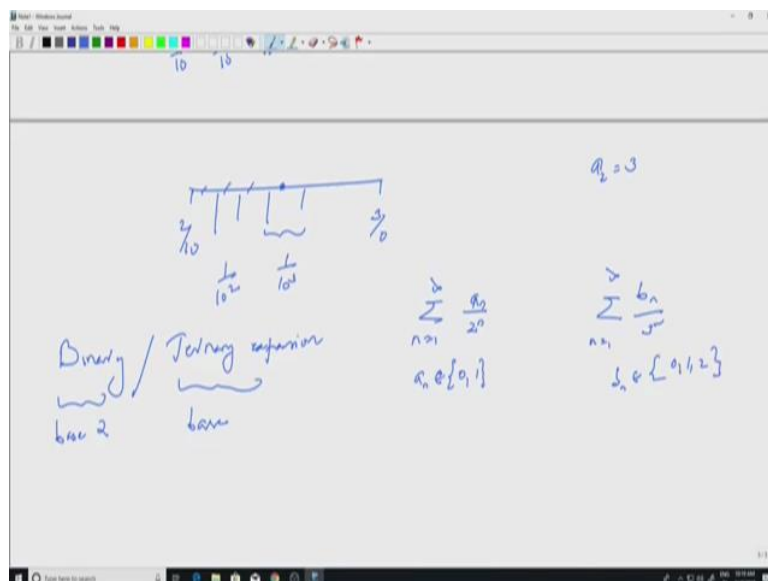 Note1 - Windows Journal
File Edit View Insert Actions Tools Help
10 10
a₂ = 3
2/10 3/0
1/10² 1/10²
∑ n=1 ∞ aₙ/2ⁿ ∑ n=1 ∞ bₙ/3ⁿ
Binary / Ternary expansion
aₙ ∈ {0, 1} bₙ ∈ {0, 1, 2}
base 2 base
Type here to search
ENG 10:19 AM